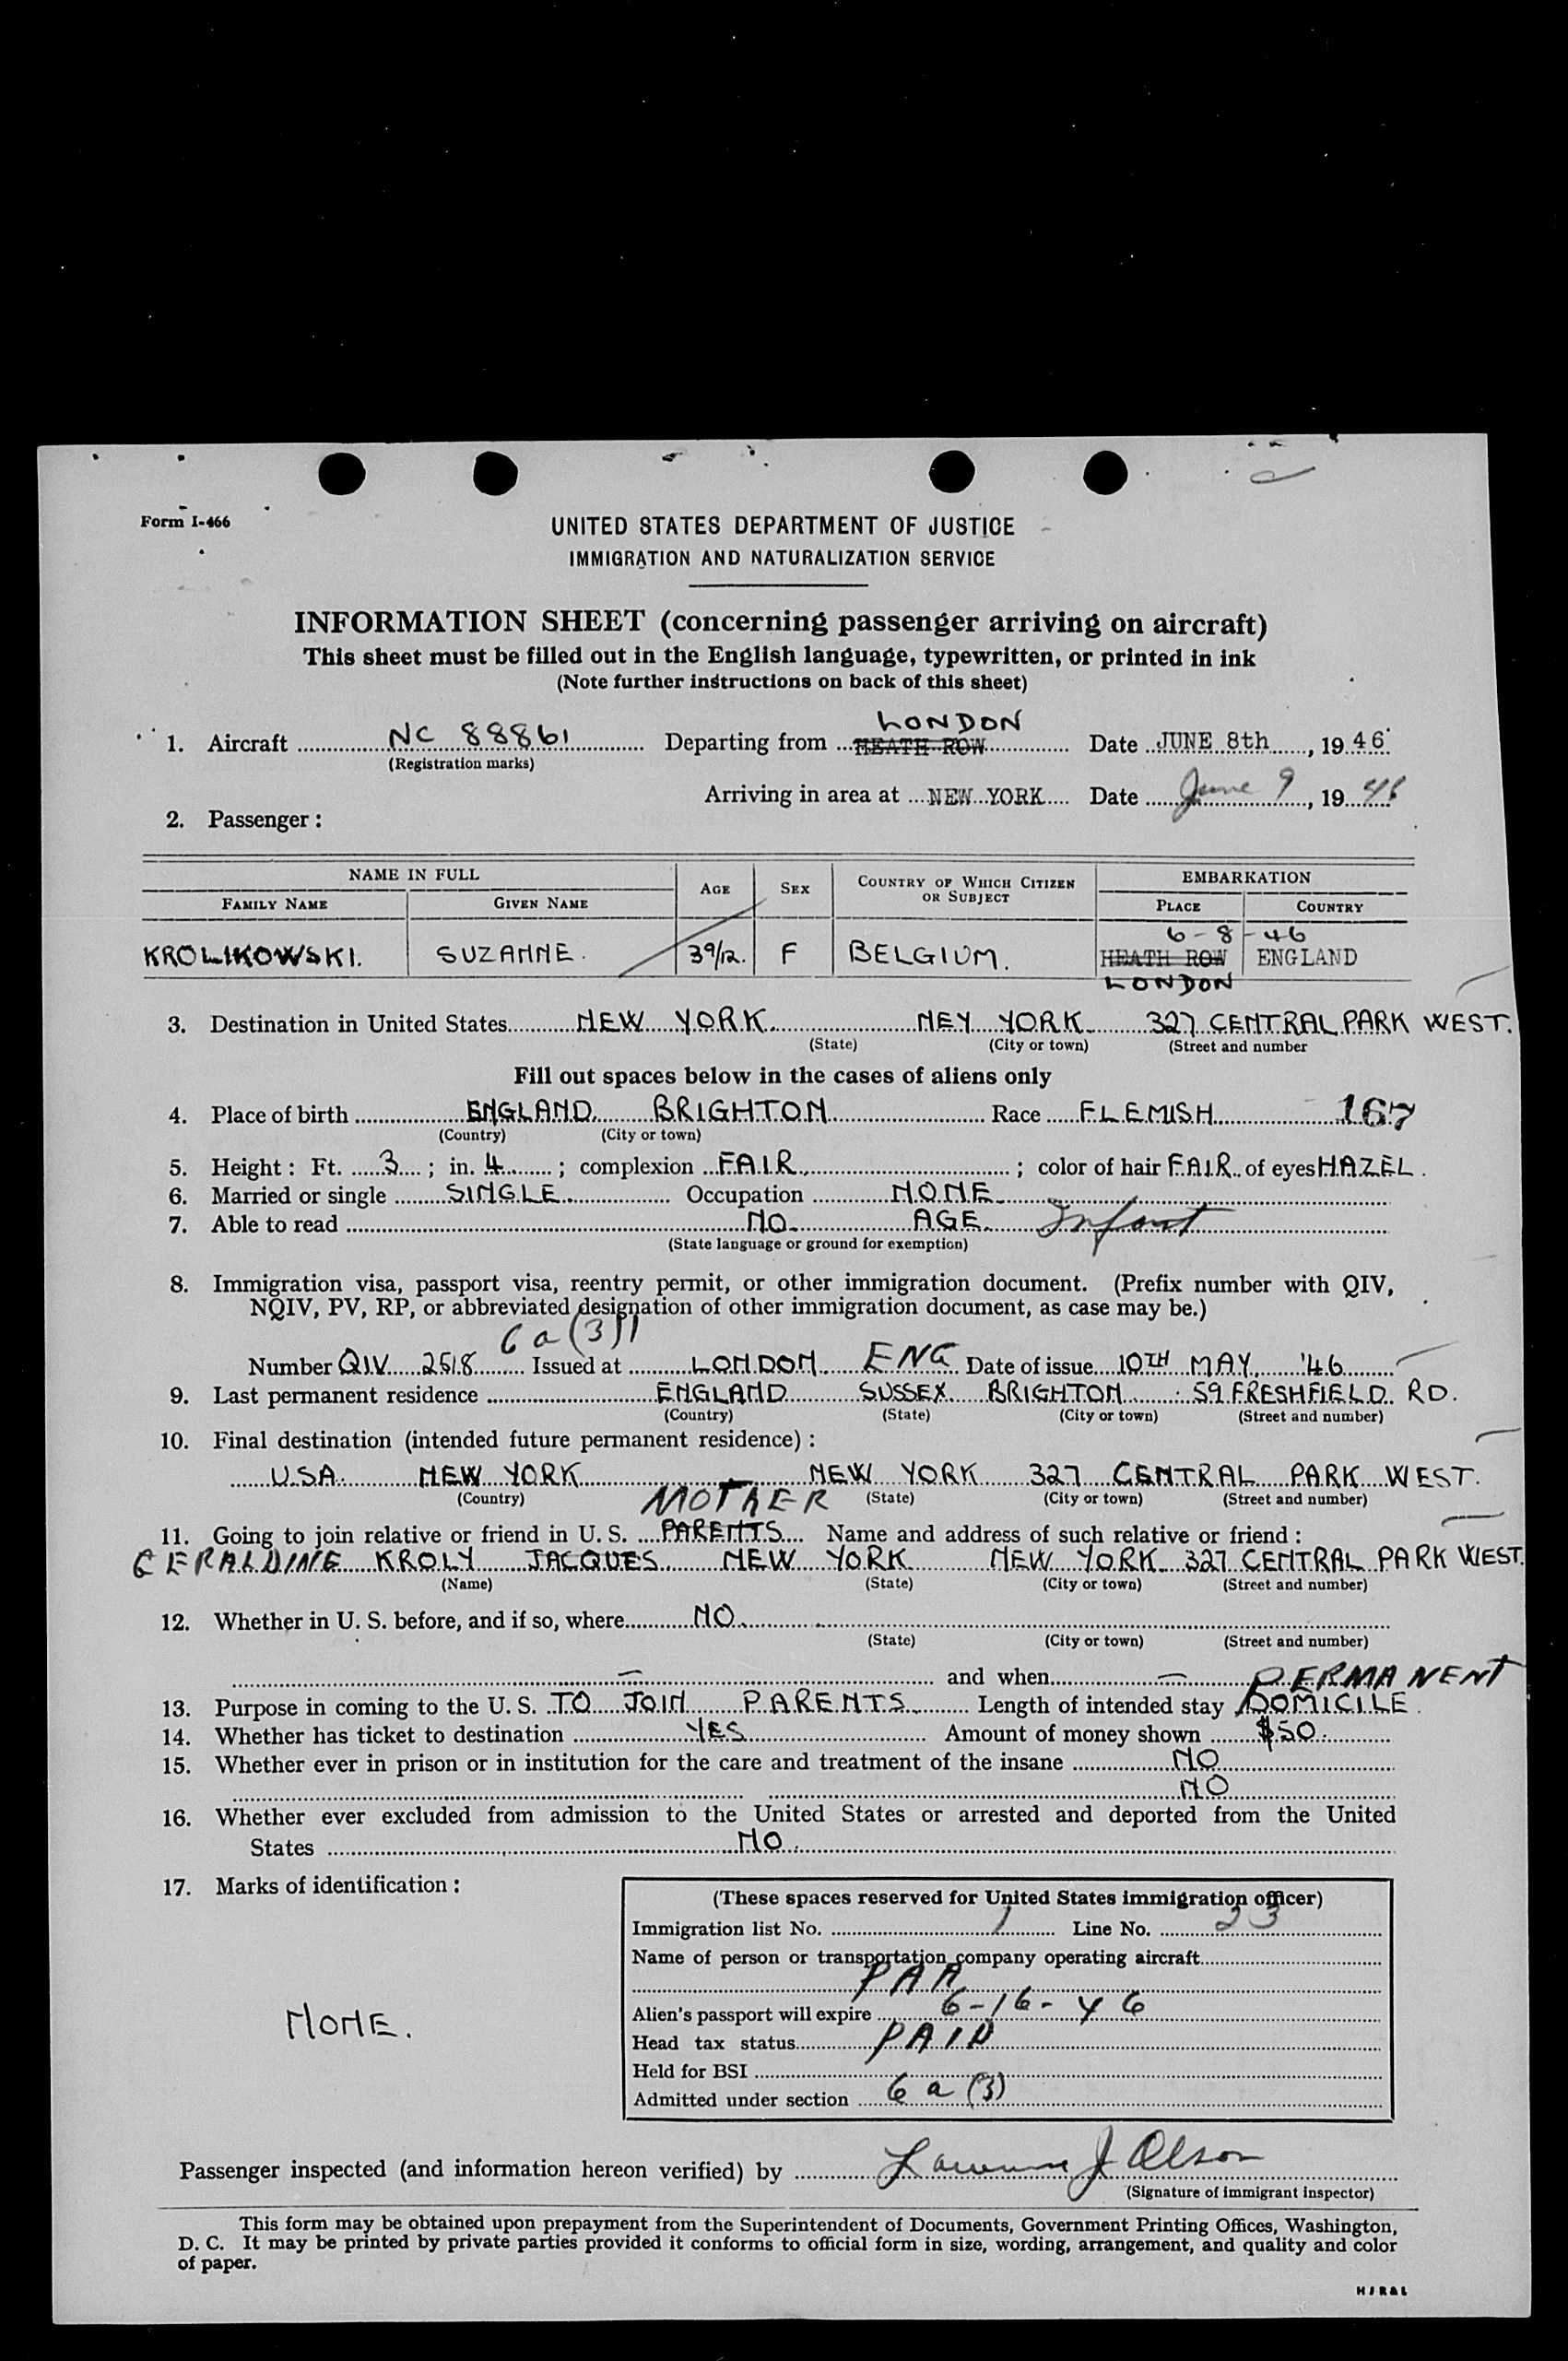 Form I-466
UNITED STATES DEPARTMENT OF JUSTICE
IMMIGRATION AND NATURALIZATION SERVICE
INFORMATION SHEET (concerning passenger arriving on aircraft)
This sheet must be filled out in the English language, typewritten, or printed in ink
(Note further instructions on back of this sheet)
LONDON
1. Aircraft NC 88861 Departing from HEATH ROW Date JUNE 8th, 1946
(Registration marks)
Arriving in area at NEW YORK Date June 9, 1946
2. Passenger:
NAME IN FULL AGE SEX COUNTRY OF WHICH CITIZEN OR SUBJECT EMBARKATION
FAMILY NAME GIVEN NAME PLACE COUNTRY
6-8-46
KROLIKOWSKI. SUZANNE. 3 9/12. F BELGIUM. HEATH ROW ENGLAND
LONDON
3. Destination in United States NEW YORK NEY YORK 327 CENTRAL PARK WEST.
(State) (City or town) (Street and number
Fill out spaces below in the cases of aliens only
4. Place of birth ENGLAND BRIGHTON Race FLEMISH 167
(Country) (City or town)
5. Height: Ft. 3; in. 4; complexion FAIR; color of hair FAIR of eyes HAZEL.
6. Married or single SINGLE Occupation NONE
7. Able to read NO AGE Infant
(State language or ground for exemption)
8. Immigration visa, passport visa, reentry permit, or other immigration document. (Prefix number with QIV,
NQIV, PV, RP, or abbreviated designation of other immigration document, as case may be.)
6a(3)1
Number QIV 2518 Issued at LONDON ENG Date of issue 10TH MAY '46
9. Last permanent residence ENGLAND SUSSEX BRIGHTON 59 FRESHFIELD RD.
(Country) (State) (City or town) (Street and number)
10. Final destination (intended future permanent residence):
U.S.A. NEW YORK NEW YORK 327 CENTRAL PARK WEST.
(Country) (State) (City or town) (Street and number)
MOTHER
11. Going to join relative or friend in U. S. PARENTS Name and address of such relative or friend:
GERALDINE KROLY JACQUES NEW YORK NEW YORK 327 CENTRAL PARK WEST.
(Name) (State) (City or town) (Street and number)
12. Whether in U. S. before, and if so, where NO
(State) (City or town) (Street and number)
— and when — PERMANENT
13. Purpose in coming to the U. S. TO JOIN PARENTS Length of intended stay DOMICILE.
14. Whether has ticket to destination YES Amount of money shown $50.
15. Whether ever in prison or in institution for the care and treatment of the insane NO
NO
16. Whether ever excluded from admission to the United States or arrested and deported from the United
States NO.
17. Marks of identification:
NONE.
(These spaces reserved for United States immigration officer)
Immigration list No. 1 Line No. 23
Name of person or transportation company operating aircraft
PAA
Alien's passport will expire 6-16-46
Head tax status PAID
Held for BSI
Admitted under section 6a(3)
Passenger inspected (and information hereon verified) by Lawrence J Olson
(Signature of immigrant inspector)
This form may be obtained upon prepayment from the Superintendent of Documents, Government Printing Offices, Washington,
D. C. It may be printed by private parties provided it conforms to official form in size, wording, arrangement, and quality and color
of paper.
HJR&L